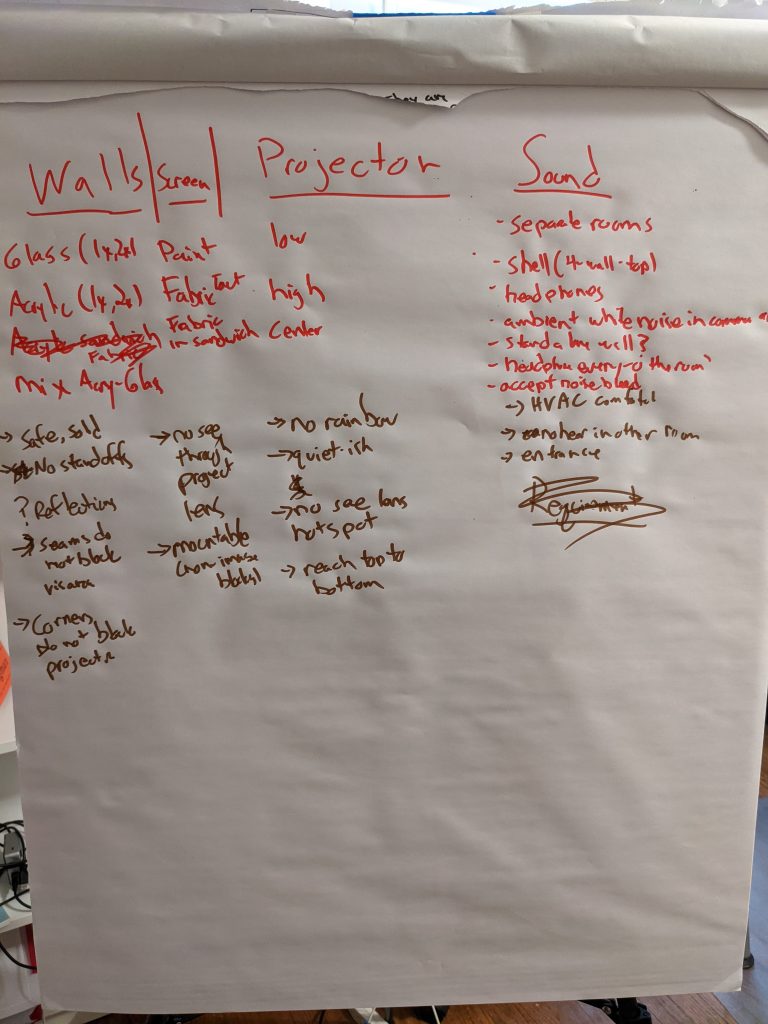 they are
Walls
Glass (1x, 2x)
Acrylic (1x, 2x)
Acrylic sandwich
Fabric
mix Acry-Glas
→ Safe, solid
→ No standoffs
? Reflections
→ seams do
not block
→ Corners
Do not block
Screen
Paint
Fabric Taut
Fabric
in sandwich
→ no see
through
project
lens
→ mountable
(non-image
Projector
low
high
center
→ no rainbow
→ quiet-ish
→ no see lens
hotspot
→ reach top to
bottom
Sound
- separate rooms
- shell (4-wall-top)
- headphones
- ambient white noise in common
- stand alone wall?
- headphone every-o the room
- accept noise bleed
→ HVAC
→ another in other room
→ entrance
Requirement